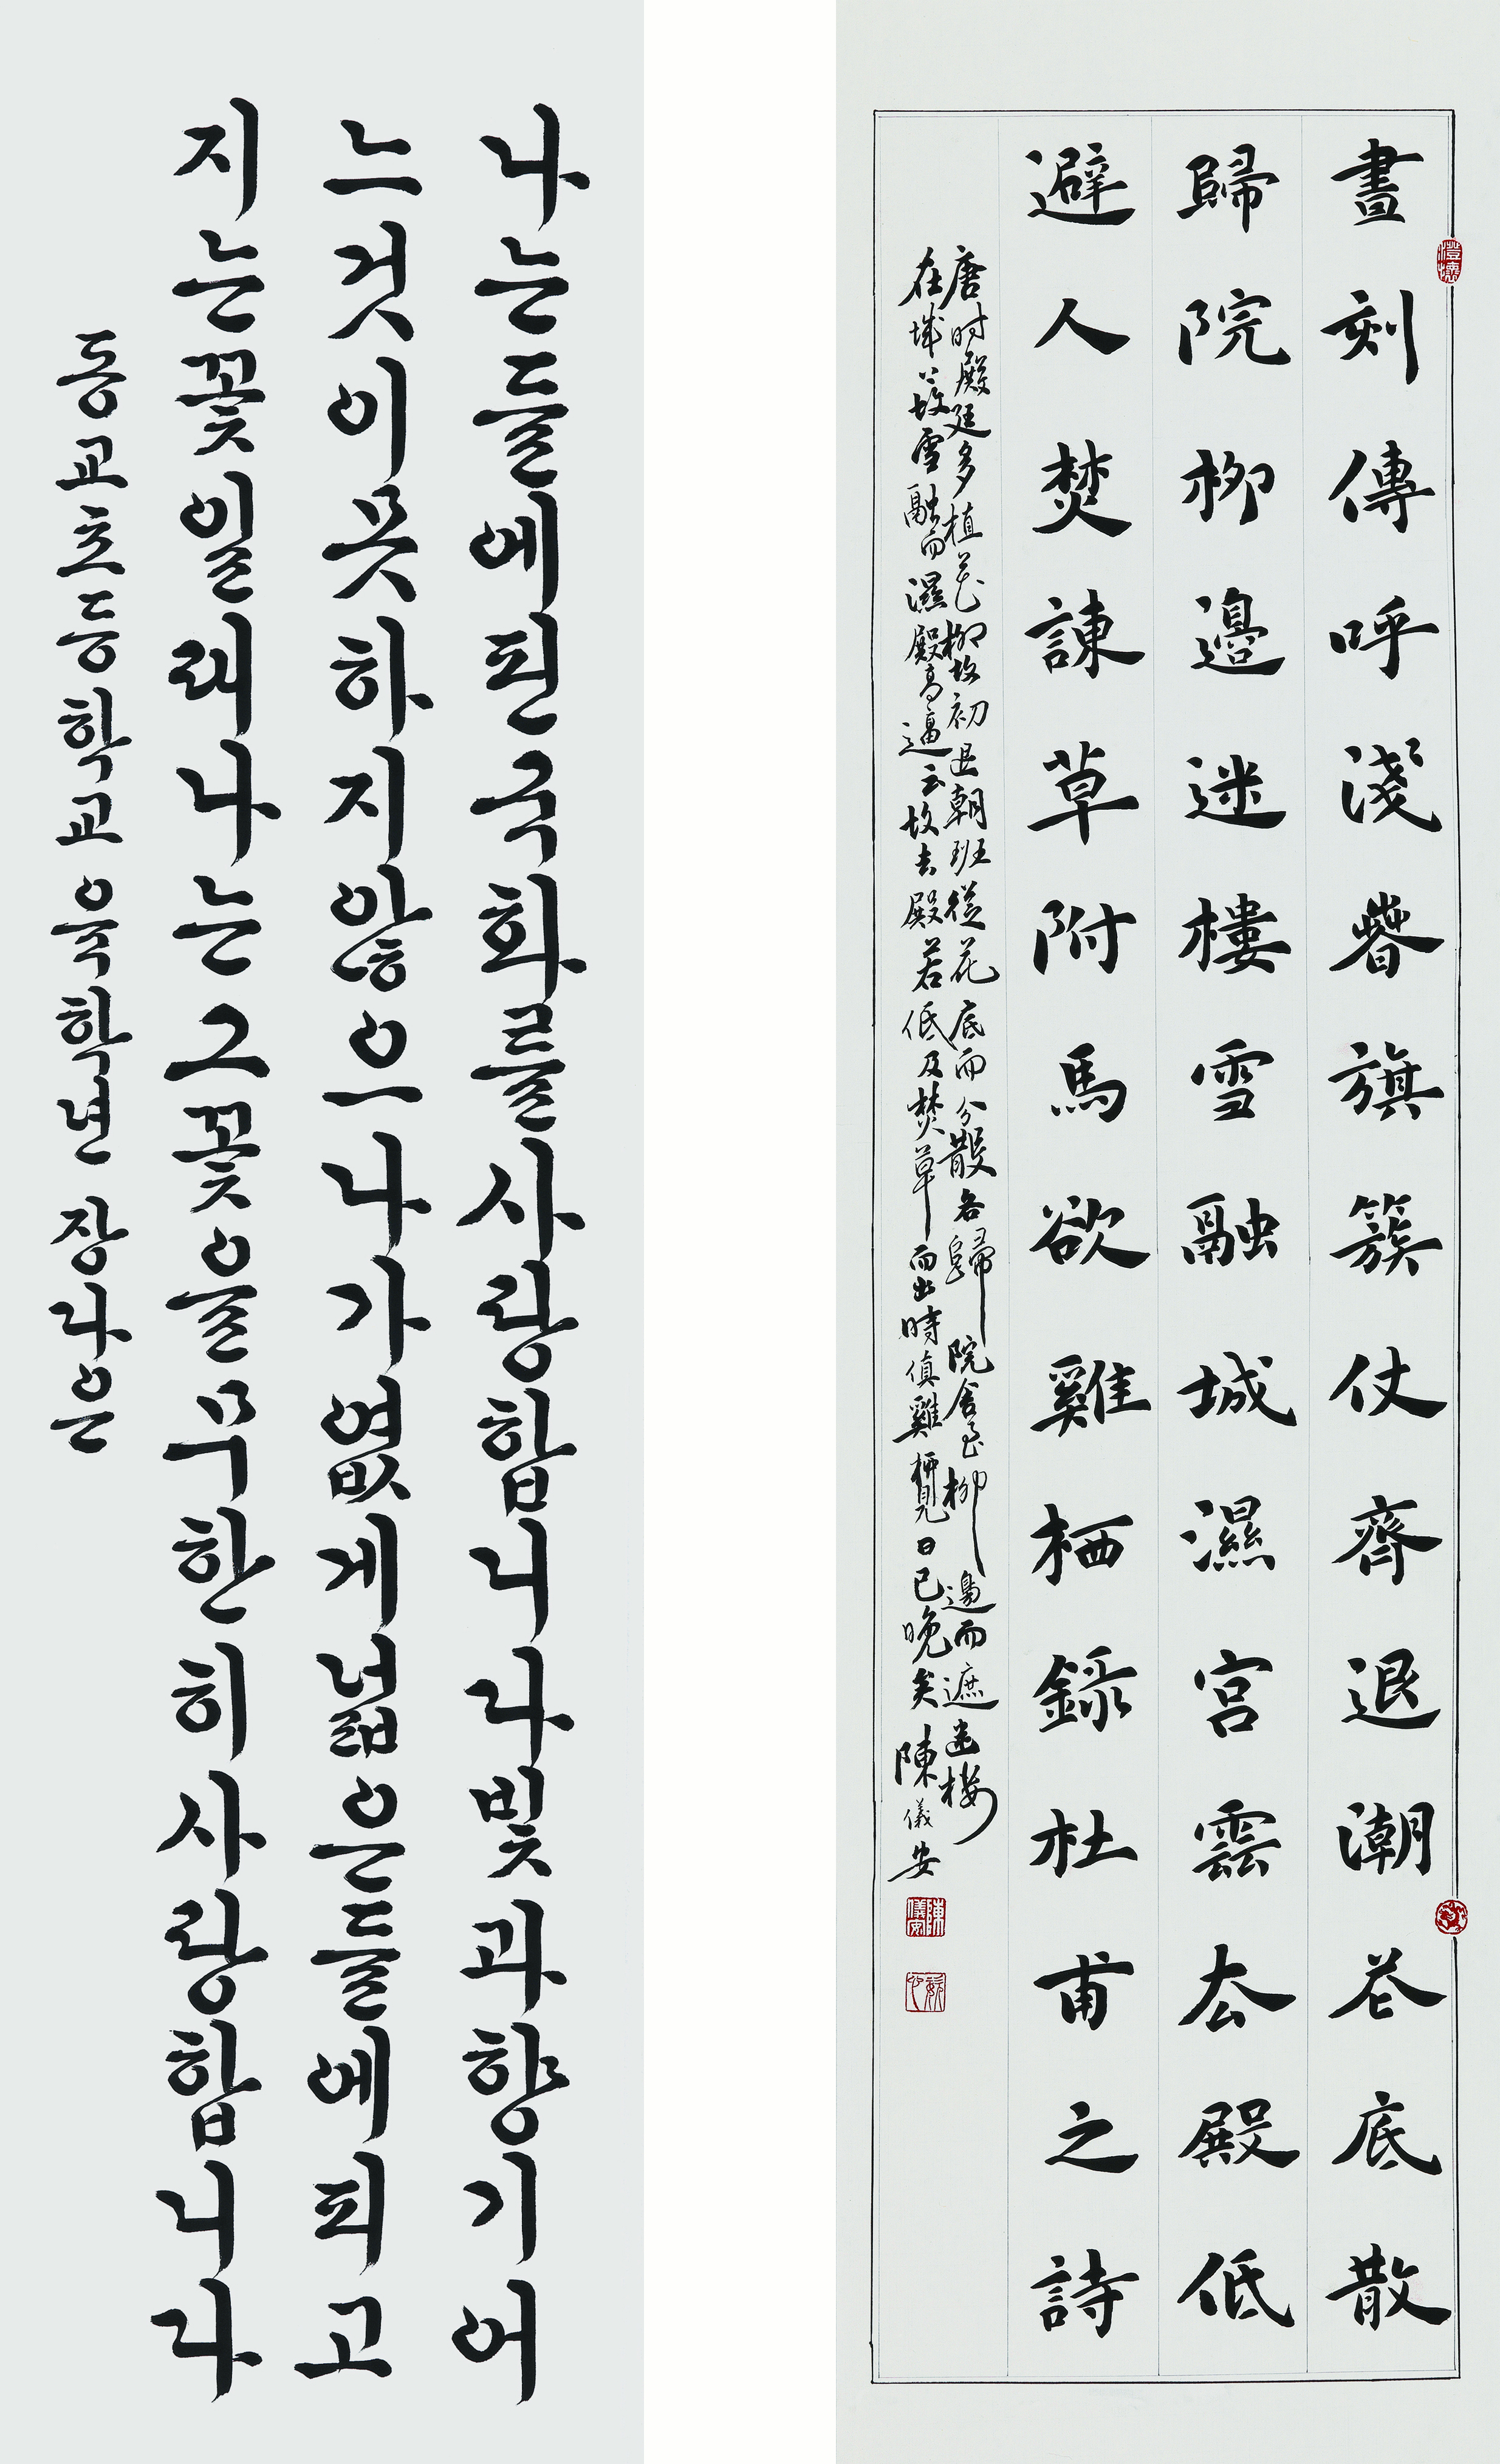 晝刻傳呼淺萅旗簇仗齊退潮花底散
歸院柳邊迷樓雪融城濕宮雲厺殿低
避人焚諫草附馬欲雞栖錄杜甫之詩
唐时殿廷多植花柳故初退朝班從花底而分散各歸院舍至柳邊而遮迷樓
在城上故雪融而濕殿高逼云故去殿若低及焚草而出時值雞栖覺日已晚矣 陳儀安
澄懷
陳儀安
나는들에핀국화를사랑합니다빛과향기어
느것이못하지않으나가엾게넓은들에피고
지는꽃일래나는그꽃을무한히사랑합니다
동교초등학교 육학년 장다은